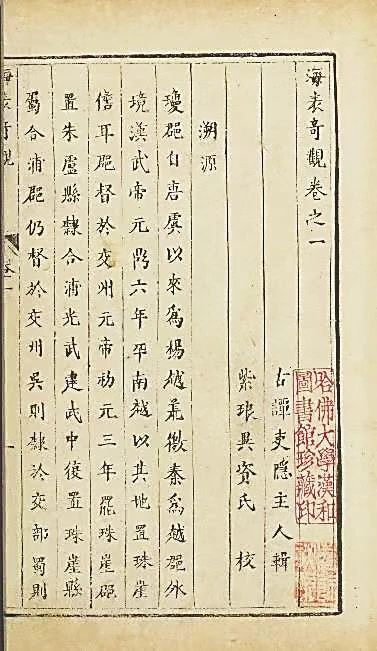 海表奇觀卷之一
古譚吏隱主人輯
紫琅興資氏 校
溯源
瓊郡自唐虞以來為楊越荒徼秦為越郡外
境漢武帝元鼎六年平南越以其地置珠崖
儋耳郡督於交州元帝初元三年罷珠崖郡
置朱盧縣隸合浦光武建武中復置珠崖縣
屬合浦郡仍督於交州吳則隸於交部蜀則
海表奇觀
卷一
一
哈佛大學漢和
圖書館珍藏印